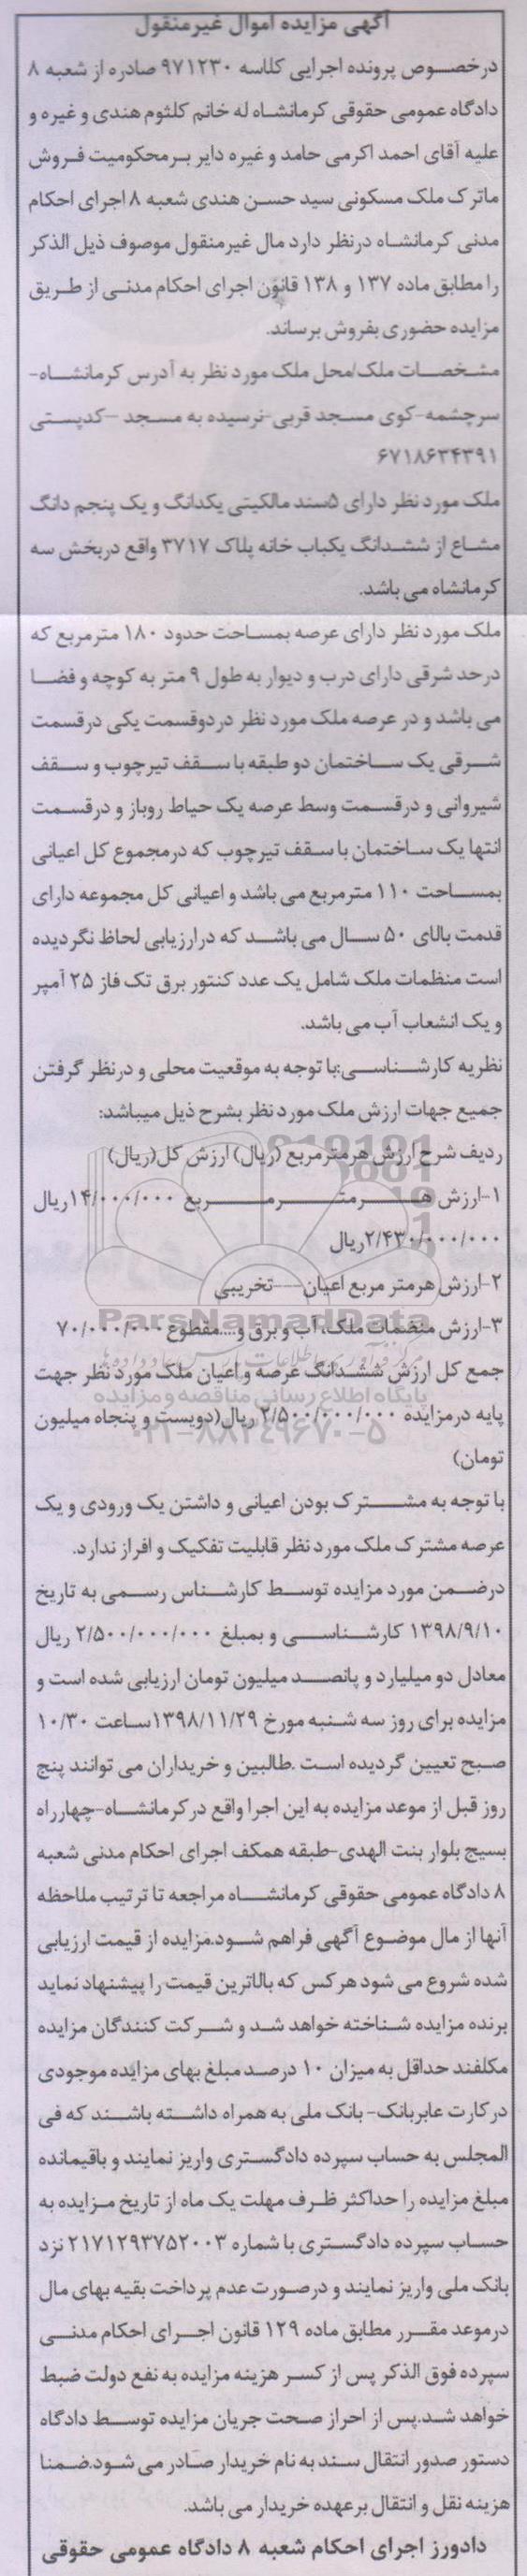 آگهی مزایده اموال غیرمنقول
درخصوص پرونده اجرایی کلاسه ۹۷۱۲۳۰ صادره از شعبه ۸
دادگاه عمومی حقوقی کرمانشاه له خانم کلثوم هندی و غیره و
علیه آقای احمد اکرمی حامد و غیره دایر برمحکومیت فروش
ماترک ملک مسکونی سید حسن هندی شعبه ۸ اجرای احکام
مدنی کرمانشاه درنظر دارد مال غیرمنقول موصوف ذیل الذکر
را مطابق ماده ۱۳۷ و ۱۳۸ قانون اجرای احکام مدنی از طریق
مزایده حضوری بفروش برساند.
مشخصات ملک/محل ملک مورد نظر به آدرس کرمانشاه-
سرچشمه-کوی مسجد قربی-نرسیده به مسجد -کدپستی
۶۷۱۸۶۳۴۳۹۱
ملک مورد نظر دارای ۵سند مالکیتی یکدانگ و یک پنجم دانگ
مشاع از ششدانگ یکباب خانه پلاک ۳۷۱۷ واقع دربخش سه
کرمانشاه می باشد.
ملک مورد نظر دارای عرصه بمساحت حدود ۱۸۰ مترمربع که
درحد شرقی دارای درب و دیوار به طول ۹ متر به کوچه و فضا
می باشد و در عرصه ملک مورد نظر دردوقسمت یکی درقسمت
شرقی یک ساختمان دو طبقه با سقف تیرچوب و سقف
شیروانی و درقسمت وسط عرصه یک حیاط روباز و درقسمت
انتها یک ساختمان با سقف تیرچوب که درمجموع کل اعیانی
بمساحت ۱۱۰ مترمربع می باشد و اعیانی کل مجموعه دارای
قدمت بالای ۵۰ سال می باشد که درارزیابی لحاظ نگردیده
است منظمات ملک شامل یک عدد کنتور برق تک فاز ۲۵ آمپر
و یک انشعاب آب می باشد.
نظریه کارشناسی:با توجه به موقعیت محلی و درنظر گرفتن
جمیع جهات ارزش ملک مورد نظر بشرح ذیل میباشد:
ردیف شرح ارزش هرمترمربع (ریال) ارزش کل(ریال)
۱-ارزش هرمترمربع ۱۴/۰۰۰/۰۰۰ریال
۲/۴۳۰/۰۰۰/۰۰۰ریال
۲-ارزش هرمتر مربع اعیان---تخریبی
۳-ارزش منضمات ملک، آب و برق و....مقطوع ۷۰/۰۰۰/۰۰۰
جمع کل ارزش ششدانگ عرصه و اعیان ملک مورد نظر جهت
پایه درمزایده ۲/۵۰۰/۰۰۰/۰۰۰ ریال(دویست و پنجاه میلیون
تومان)
با توجه به مشترک بودن اعیانی و داشتن یک ورودی و یک
عرصه مشترک ملک مورد نظر قابلیت تفکیک و افراز ندارد.
درضمن مورد مزایده توسط کارشناس رسمی به تاریخ
۱۳۹۸/۹/۱۰ کارشناسی و بمبلغ ۲/۵۰۰/۰۰۰/۰۰۰ ریال
معادل دو میلیارد و پانصد میلیون تومان ارزیابی شده است و
مزایده برای روز سه شنبه مورخ ۱۳۹۸/۱۱/۲۹ساعت ۱۰/۳۰
صبح تعیین گردیده است .طالبین و خریداران می توانند پنج
روز قبل از موعد مزایده به این اجرا واقع در کرمانشاه-چهارراه
بسیج بلوار بنت الهدی-طبقه همکف اجرای احکام مدنی شعبه
۸ دادگاه عمومی حقوقی کرمانشاه مراجعه تا ترتیب ملاحظه
آنها از مال موضوع آگهی فراهم شود.مزایده از قیمت ارزیابی
شده شروع می شود هرکس که بالاترین قیمت را پیشنهاد نماید
برنده مزایده شناخته خواهد شد و شرکت کنندگان مزایده
مکلفند حداقل به میزان ۱۰ درصد مبلغ بهای مزایده موجودی
در کارت عابربانک- بانک ملی به همراه داشته باشند که فی
المجلس به حساب سپرده دادگستری واریز نمایند و باقیمانده
مبلغ مزایده را حداکثر ظرف مهلت یک ماه از تاریخ مزایده به
حساب سپرده دادگستری با شماره ۲۱۷۱۲۹۳۷۵۲۰۰۳ نزد
بانک ملی واریز نمایند و درصورت عدم پرداخت بقیه بهای مال
درموعد مقرر مطابق ماده ۱۲۹ قانون اجرای احکام مدنی
سپرده فوق الذکر پس از کسر هزینه مزایده به نفع دولت ضبط
خواهد شد.پس از احراز صحت جریان مزایده توسط دادگاه
دستور صدور انتقال سند به نام خریدار صادر می شود.ضمنا
هزینه نقل و انتقال برعهده خریدار می باشد.
دادورز اجرای احکام شعبه ۸ دادگاه عمومی حقوقی
ParsNamadData
پایگاه اطلاع رسانی مناقصه و مزایده
۰۲۱-۸۸۳۴۹۶۷۰-۵